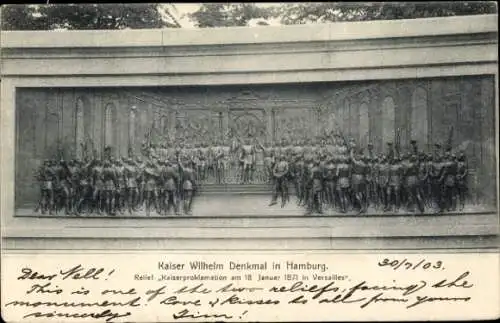 Kaiser Wilhelm Denkmal in Hamburg.
Relief „Kaiserproklamation am 18 Januar 1871 in Versailles".
30/7/03.
Dear Nell!
This is one of the two reliefs, facing the
monument. Love & kisses to all from yours
sincerely Tim!